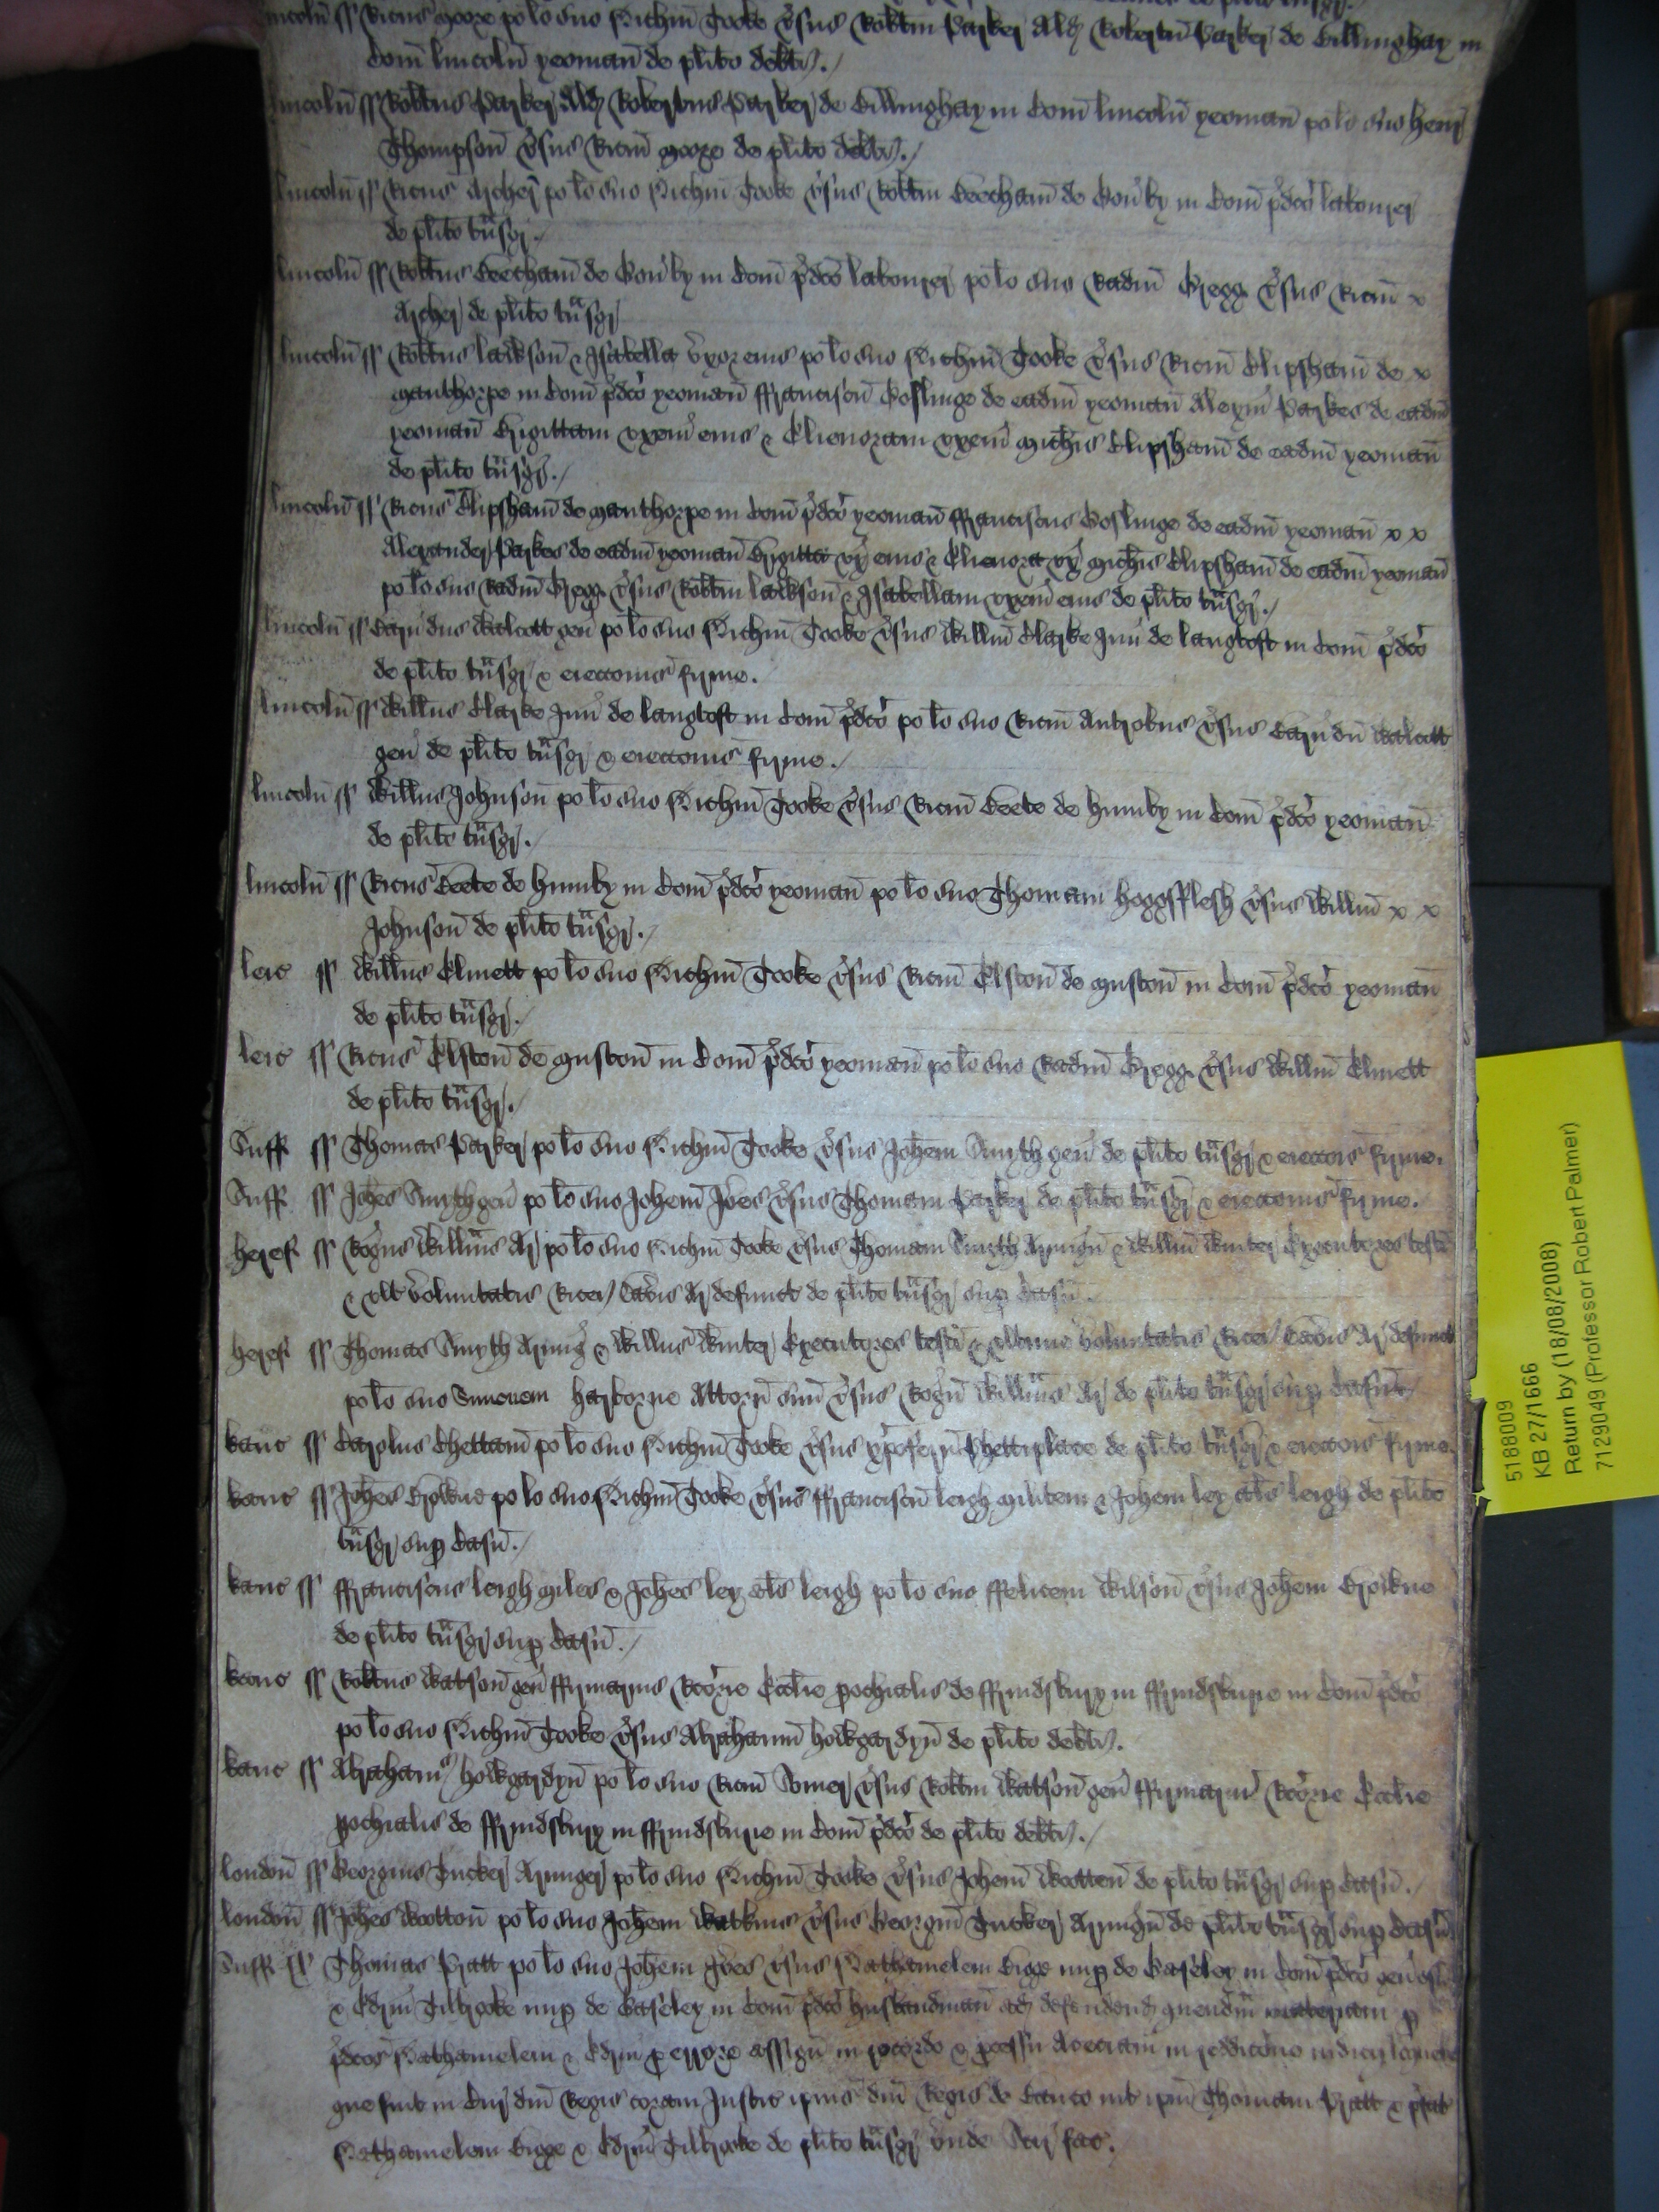 lincoln ss Ricus Moore po lo suo Nichm Tooke vsus Robtm Parker Als Robertu Parker de Billinghay in
Com lincoln yeoman de plito debti.
lincoln ss Robtus Parker Als Robertus Parker de Billinghay in Com lincoln yeoman po lo suo Henr
Thompson vsus Ricm Moore de plito debti.
lincoln ss Ricus Archer po lo suo Nichm Tooke vsus Robtm Beecham de in Com pdco labourer
de plito tnsgr.
lincoln ss Robtus Beecham de in Com pdco labourer po lo suo Radm Gregg vsus Ricm x
Archer de plito tnsgr
lincoln ss Robtus lawkson & Isabella uxor eius po lo suo Nichm Tooke vsus Ricm Clipsham de x
Manthorpe in Com pdco yeoman ffranciscu Goslinge de eadm yeoman Alexm Parkes de eadm
yeoman Brigittam uxem eius & Elienoram uxem Michis Clipsham de eadm yeoman
de plito tnsgr.
lincoln ss Ricus Clipsham de Manthorpe in Com pdco yeoman ffranciscus Goslinge de eadm yeoman x x
Alexander Parkes de eadm yeoman Brigitta ux eius & Elienora ux Michis Clipsham de eadm yeoman
po lo suo Radm Gregg vsus Robtm lawkson & Isabellam uxem eius de plito tnsgr.
lincoln ss Walcott gen po lo suo Nichm Tooke vsus Willm Clarke Jun de langtoft in Com pdco
de plito tnsgr & eiecconis firme.
lincoln ss Willus Clarke Jun de langtoft in Com pdco po lo suo Ricm Antrobus vsus Walcott
gen de plito tnsgr & eiecconis firme.
lincoln ss Willus Johnson po lo suo Nichm Tooke vsus Ricm Beete de Humby in Com pdco yeoman
de plito tnsgr.
lincoln ss Ricus Beete de Humby in Com pdco yeoman po lo suo Thomam Hoggsflesh vsus Willm x x
Johnson de plito tnsgr.
leic ss Willus Elmett po lo suo Nichm Tooke vsus Ricm Elston de Muston in Com pdco yeoman
de plito tnsgr.
leic ss Ricus Elston de Muston in Com pdco yeoman po lo suo Radm Gregg vsus Willm Elmett
de plito tnsgr.
Suff ss Thomas Parker po lo suo Nichm Tooke vsus Johem Smyth gen de plito tnsgr & eieccois firme.
Suff ss Johes Smyth gen po lo suo Johem Ives vsus Thomam Parker de plito tnsgr & eieccionis firme.
heref ss Rogus Williams Ar po lo suo Nichm Tooke vsus Thomam Smyth Armign & Willm Winter Executores testi
& ult voluntatis Rici Ar defunct de plito tnsgr sup casu.
heref ss Thomas Smyth Armig & Willus Winter Executores testi & ultime voluntatis Rici Ar defunct
po lo suo Simonem Harborne Attorn suu vsus Rogu Williams Ar de plito tnsgr sup casu
kanc ss Carolus Chettam po lo suo Nichm Tooke vsus Xpoferu Phettiplace de plito tnsgr & eieccois firme.
kanc ss Johes Browne po lo suo Nichm Tooke vsus ffranciscu leigh militem & Johem ley als leigh de plito
tnsgr sup casu.
kanc ss ffranciscus leigh miles & Johes ley als leigh po lo suo ffelicem Wilson vsus Johem Browne
de plito tnsgr sup casu.
kanc ss Robtus Watson gen ffirmarius Rcorie Ecclie pochialis de ffrindsbury in ffrindsburie in Com pdco
po lo suo Nichm Tooke vsus Abrahamu howgardyn de plito debti.
kanc ss Abraham howgardyn po lo suo Ricm Somer vsus Robtm Watson gen ffirmariu Rcorie Ecclie
pochialis de ffrindsbury in ffrindsburie in Com pdco de plito debti.
london ss Georgius Tucker Armiger po lo suo Nichm Tooke vsus Johem Wootten de plito tnsgr sup casu.
london ss Johes Wootton po lo suo Johem Watkins vsus Georgiu Tucker Armigu de plito tnsgr sup casu
Suff ss Thomas Pratt po lo suo Johem Ives vsus Nathanielem Bigge nup de Gaseley in Com pdco gen
& Edrm Tilbroke nup de Gaseley in Com pdco husbandman ad defendend quendm p
pdcos Nathanielem & Edrm p errore assign in recordo & pcessu Acetiam in reddicone iudicij loquele
que fuit in Cur dni Regis coram Justic ipius dni Regis de Banco int ipm Thomam Pratt & pfat
Nathanielem Bigge & Edrm Tilbroke de plito tnsgr unde Scir fac.
5188009
KB 27/1666
Return by (18/08/2008)
7129049 (Professor Robert Palmer)